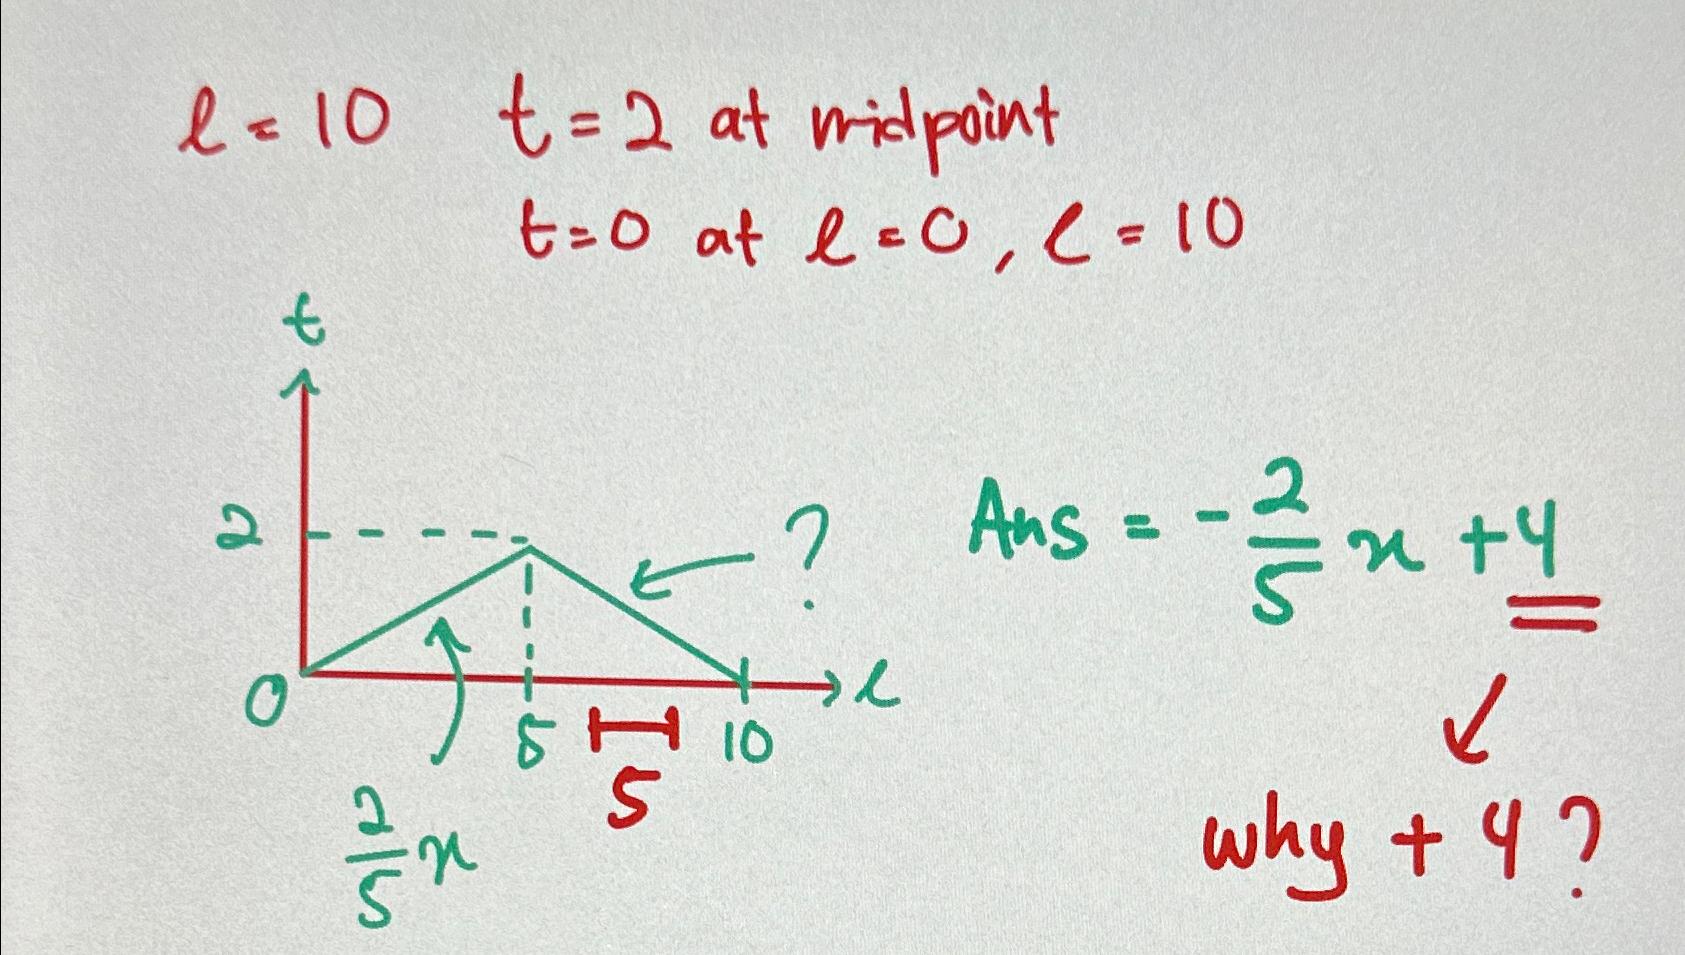 l = 10 t = 2 at midpoint
t = 0 at l = 0, l = 10
t
2
?
Ans = - 2/5 x + 4
0
5
10
l
5
2/5 x
why + 4 ?